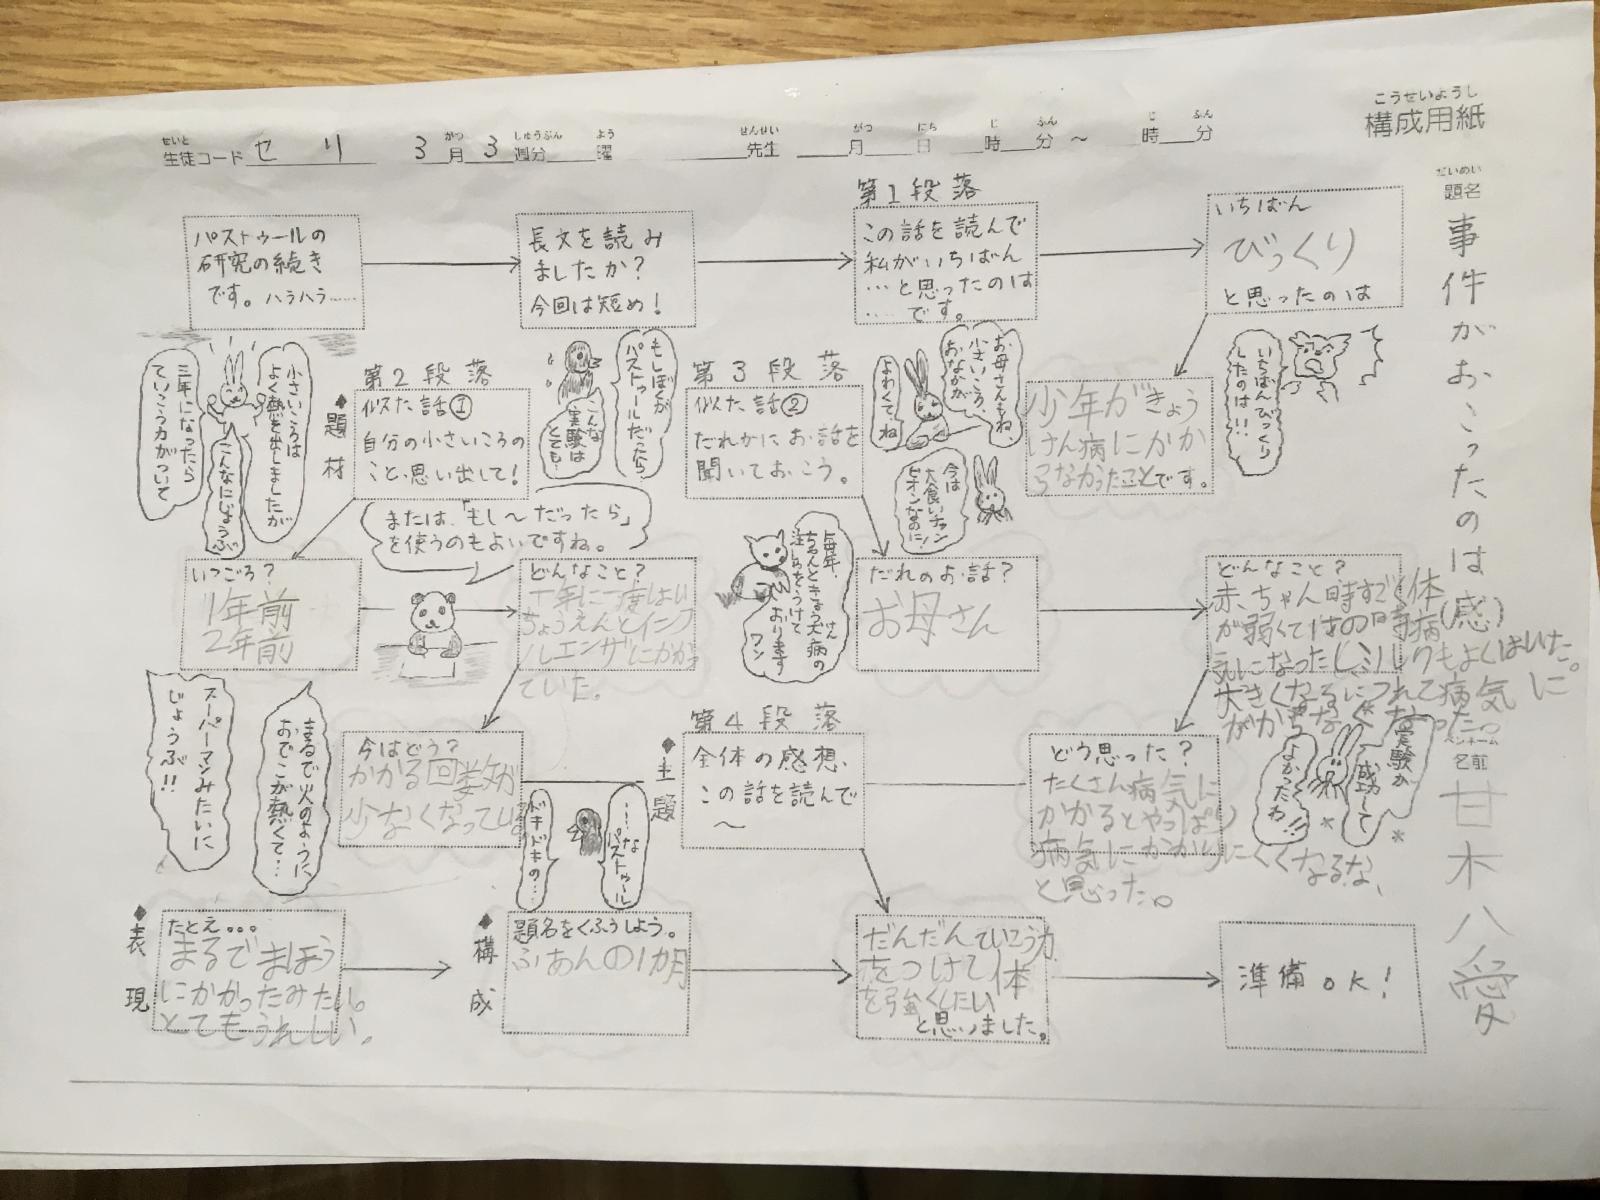 こうせいようし
構成用紙
せいと がつ しゅうぶん よう せんせい がつ にち じ ふん じ ふん
生徒コード セリ 3月3週分 曜 先生 月 日 時 分 ~ 時 分
だいめい
題名
事件がおこったのは
パストゥールの
研究の続き
です。ハラハラ……
長文を読み
ましたか?
今回は短め!
第1段落
この話を読んで
私がいちばん
…と思ったのは
……です。
いちばん
びっくり
と思ったのは
いちばんびっくり
したのは!!
少年がきょう
けん病にかか
らなかったことです。
◆題材
第2段落
似た話①
自分の小さいころの
こと、思い出して!
小さいころは
よく熱を出しましたが
三年になったら
ていこう力がついて
こんなにじょうぶ
または、「もし~だったら」
を使うのもよいですね。
もしぼくが
パストゥールだったら
こんな
実験は
とても…
第3段落
似た話②
だれかにお話を
聞いておこう。
お母さんもね
小さいころ、
おなかが
よわくてね
今は
大食いチャン
ピオンなのに!
いつごろ?
1年前
2年前
どんなこと?
十年に一度はい
ちょうえんとインフ
ルエンザにかかっ
ていた。
毎年、
ちゃんときょう犬病の
注しゃをうけて
おります
ワン
だれのお話?
お母さん
どんなこと?
赤ちゃん時すごく体
が弱くて
気になったしミルクもよくはいた。
大きくなるにつれて病気に
がからなくなった。
スーパーマンみたいに
じょうぶ!!
まるで火のように
おでこが熱くて…
今はどう?
かかる回数が
少なくなっている。
◆主題
第4段落
全体の感想、
この話を読んで
~
……な
パストゥール
ドキドキの…
どう思った?
たくさん病気に
かかるとやっぱり
病気にかかりにくくなるな、
と思った。
実験が
成功して
よかったわ!!
ペンネーム
名前
甘木八愛
◆表現
たとえ。。。
まるでまほう
にかかったみたい。
とてもうれしい。
◆構成
題名をくふうしよう。
ふあんの1か月
だんだんていこう力
をつけて体
を強くしたい
と思いました。
準備OK!